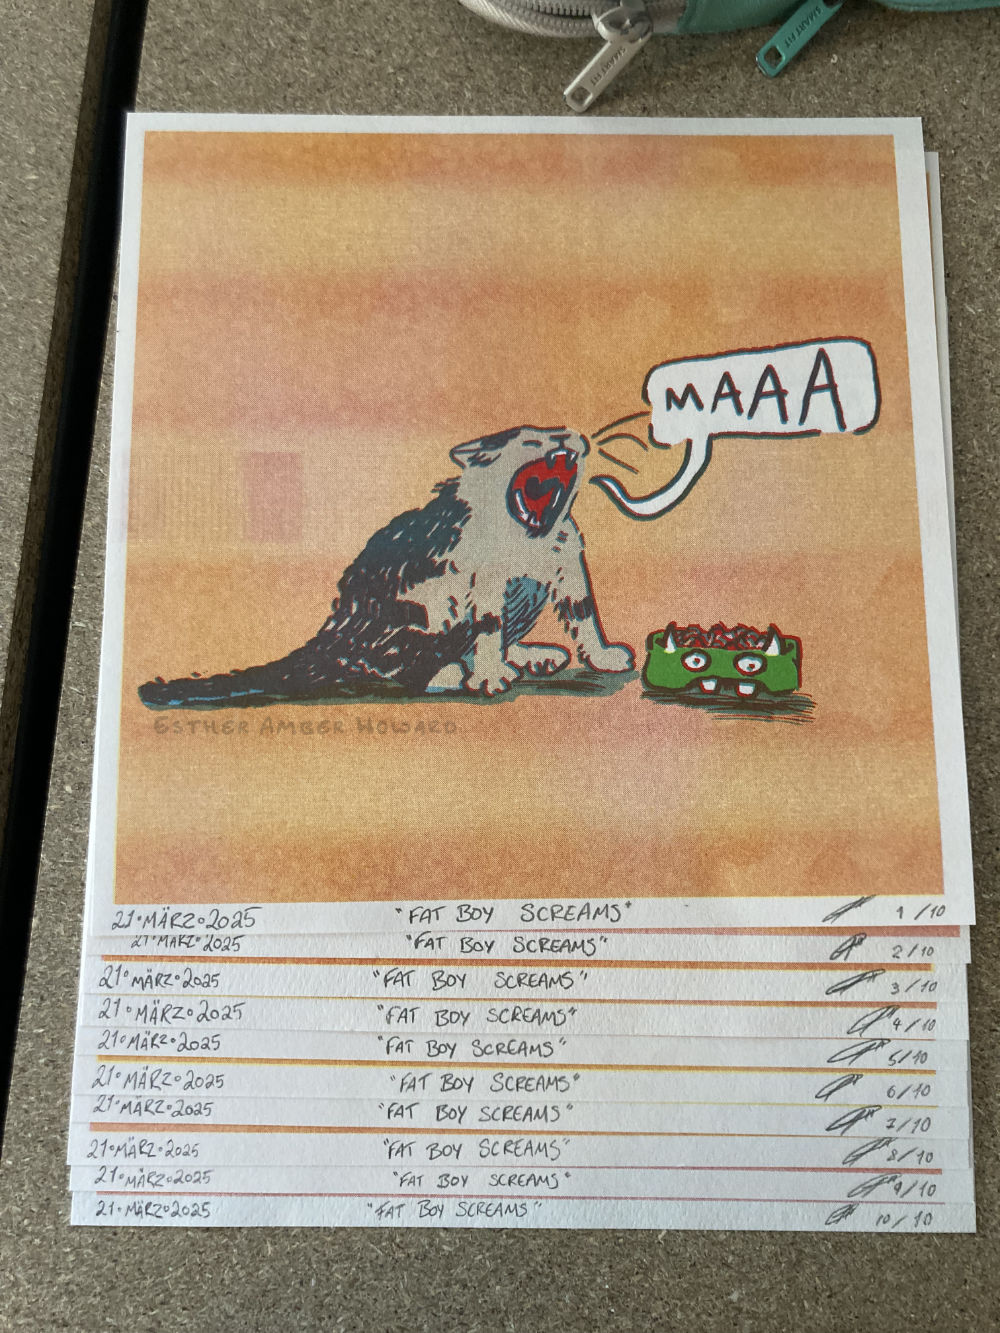 SMART FIT
SMART FIT
MAAA
ESTHER AMBER HOWARD
21•MÄRZ•2025 "FAT BOY SCREAMS" 1/10
21•MÄRZ•2025 "FAT BOY SCREAMS" 2/10
21•MÄRZ•2025 "FAT BOY SCREAMS" 3/10
21•MÄRZ•2025 "FAT BOY SCREAMS" 4/10
21•MÄRZ•2025 "FAT BOY SCREAMS" 5/10
21•MÄRZ•2025 "FAT BOY SCREAMS" 6/10
21•MÄRZ•2025 "FAT BOY SCREAMS" 7/10
21•MÄRZ•2025 "FAT BOY SCREAMS" 8/10
21•MÄRZ•2025 "FAT BOY SCREAMS" 9/10
21•MÄRZ•2025 "FAT BOY SCREAMS" 10/10